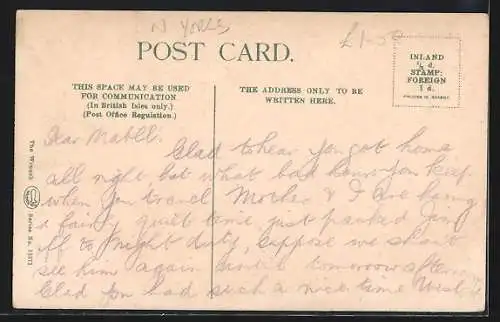 N YORKS
£1-50
POST CARD.
THIS SPACE MAY BE USED
FOR COMMUNICATION
(In British Isles only.)
(Post Office Regulation.)
THE ADDRESS ONLY TO BE
WRITTEN HERE.
INLAND
½d.
STAMP:
FOREIGN
1d.
The Wrench
Series No.
Dear Mabell.
Glad to hear you got home
all right but what bad hours you keep
when you travel Mother & I are having
a fairly quiet time just packed
off to night duty, suppose we shan't
see him again until tomorrow
Glad you had such a nice time West